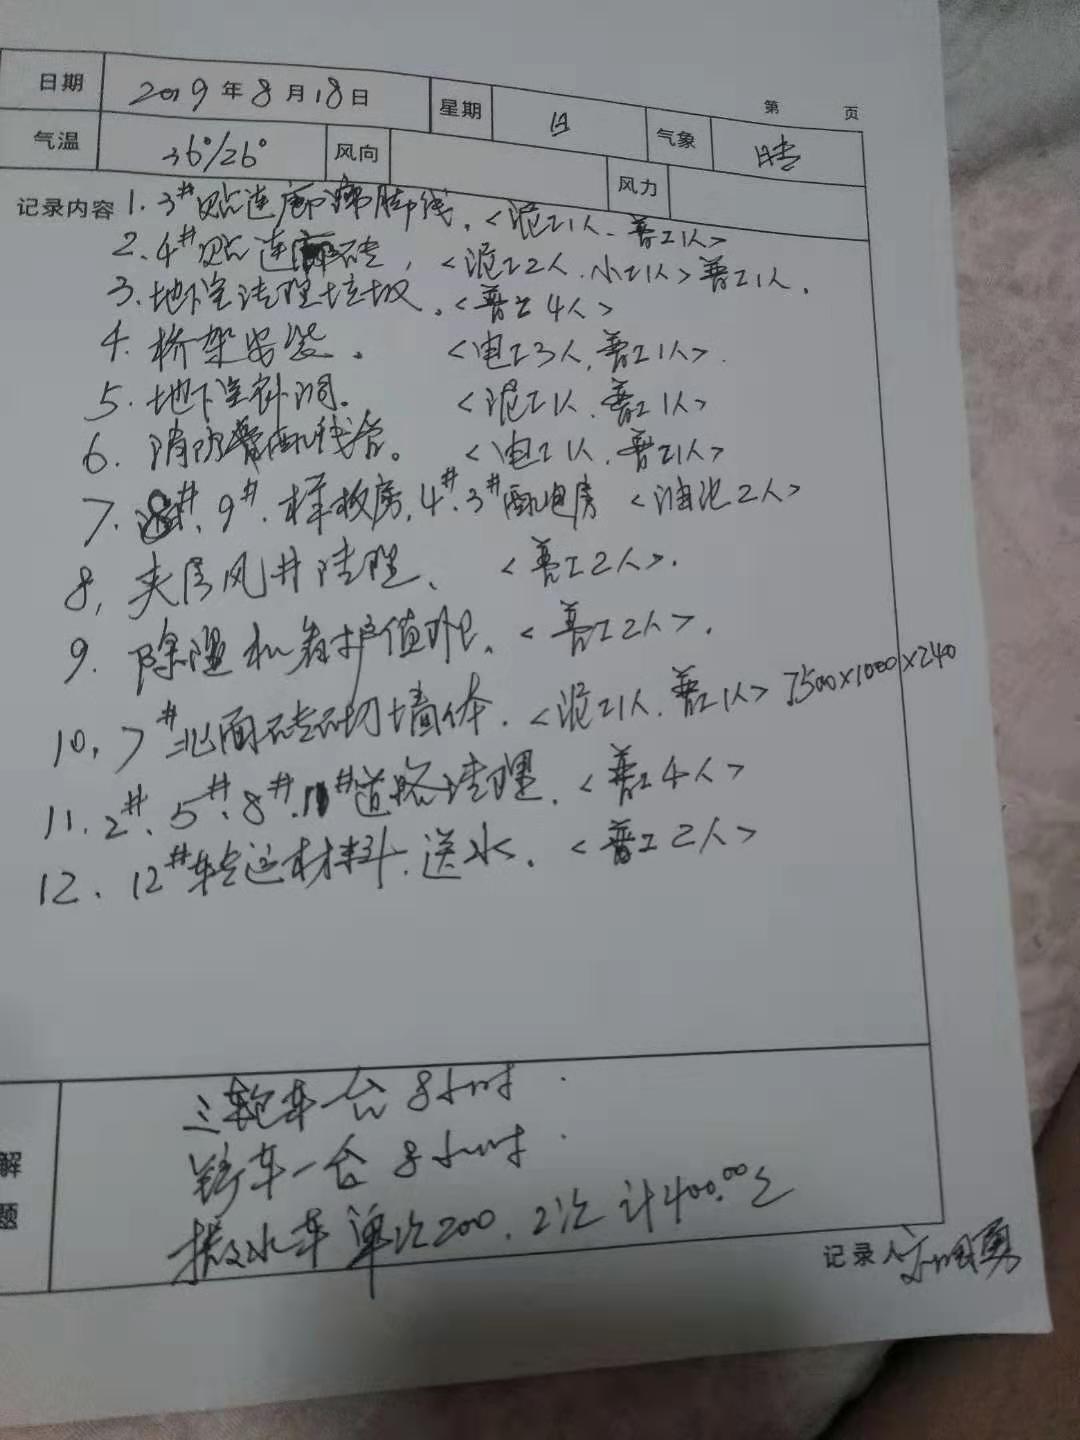 第 页
日期 2019年8月18日 星期 日 气象 晴
气温 36°/26° 风向 风力
记录内容 1. 3#贴连廊踢脚线. <泥工1人. 普工1人>
2. 4#贴连廊砖, <泥工2人. 小工1人> 普工1人.
3. 地下室清理垃圾. <普工4人>
4. 桥架安装. <电工3人, 普工1人>.
5. 地下室补洞. <泥工1人. 普工1人>
6. 消防 配线管。 <电工1人. 普工1人>
7. 8#. 9#. 样板房. 4#. 3#配电房 <油漆2人>
8, 夹层风井清理、 <普工2人>.
9. 除湿机看护值班. <普工2人>.
10, 7#北面砖砌墙体. <泥工1人. 普工1人> 7500×1000×240
11. 2#. 5#. 8#. 11#道路清理. <普工4人>
12. 12#转运材料. 送水. <普工2人>
解
题
三轮车一台 8小时.
轿车一台 8小时.
水车 单次200. 2次 计400.00元
记录人